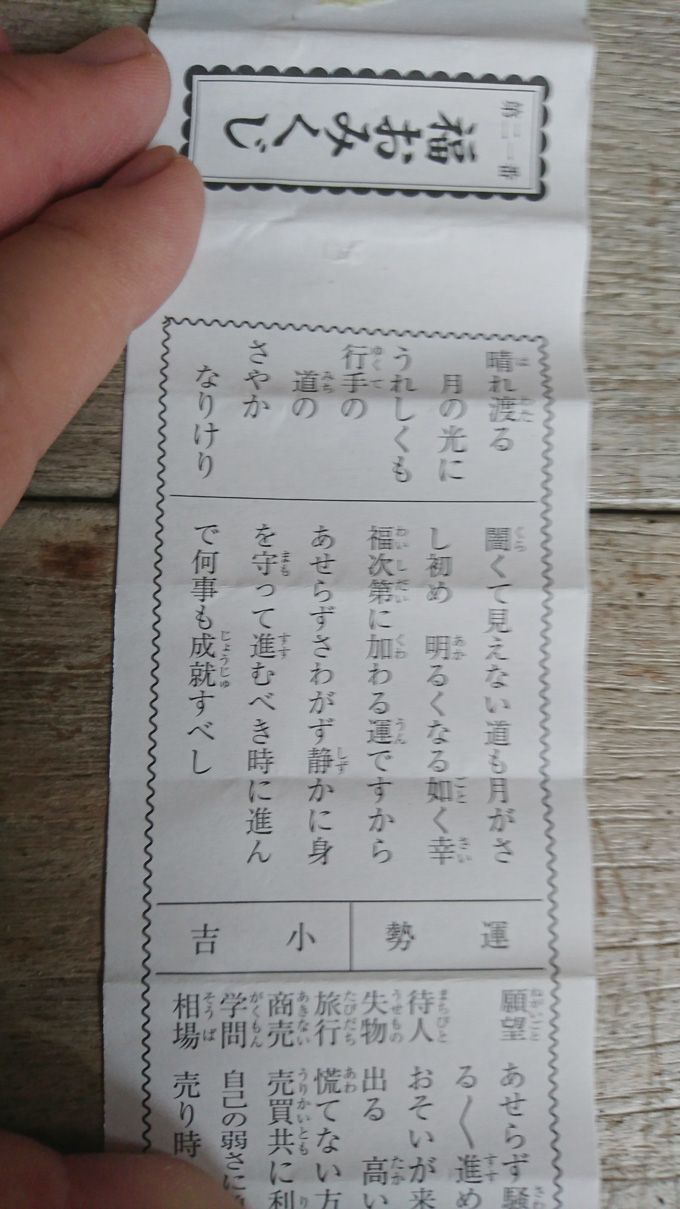 第二一番
福おみくじ
晴れ渡る
月の光に
うれしくも
行手の
道の
さやか
なりけり
闇くて見えない道も月がさ
し初め 明るくなる如く幸
福次第に加わる運ですから
あせらずさわがず静かに身
を守って進むべき時に進ん
で何事も成就すべし
運勢
小吉
願望 あせらず騒
る〱進め
待人 おそいが来
失物 出る 高い
旅行 慌てない方
商売 売買共に利
学問 自己の弱さに
相場 売り時